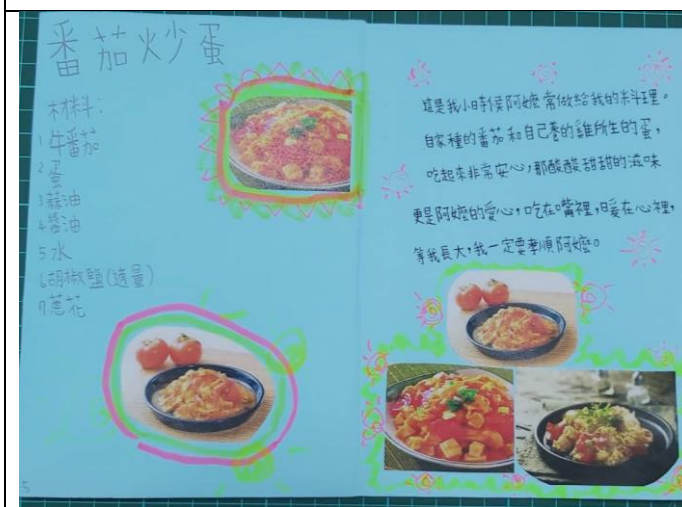 番茄炒蛋
材料：
1 牛番茄
2 蛋
3 蒜油
4 醬油
5 水
6 胡椒鹽(適量)
7 蔥花
這是我小時侯阿嬤常做給我的料理。
自家種的番茄和自己養的雞所生的蛋，
吃起來非常安心，那酸酸甜甜的滋味
更是阿嬤的愛心，吃在嘴裡，暖在心裡，
等我長大，我一定要孝順阿嬤。